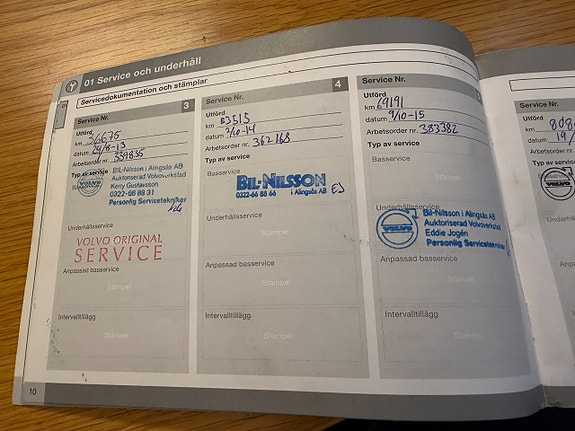 01 Service och underhåll
Servicedokumentation och stämplar
Service Nr. 3
Utförd
km 36675
datum 29/8-13
Arbetsorder nr. 339835
Typ av service
VOLVO
BIL-Nilsson i Alingsås AB
Auktoriserad Volvoverkstad
Kerry Gustavsson
0322-66 88 31
Personlig Servicetekniker
Underhållsservice
VOLVO ORIGINAL
SERVICE
Anpassad basservice
Stämpel
Intervalltillägg
Stämpel
10
Service Nr. 4
Utförd
km 53515
datum 2/10-14
Arbetsorder nr. 362168
Typ av service
Basservice
BIL-NILSSON
0322-66 88 66 i Alingsås AB
EJ
Underhållsservice
Stämpel
Anpassad basservice
Stämpel
Intervalltillägg
Stämpel
Service Nr.
Utförd
km 69191
datum 9/10-15
Arbetsorder nr. 383382
Typ av service
Basservice
Stämpel
Underhållsservice
VOLVO
Bil-Nilsson i Alingsås AB
Auktoriserad Volvoverkstad
Eddie Jogén
Personlig Servicetekniker
Anpassad basservice
Stämpel
Intervalltillägg
Stämpel
Service Nr.
Utförd
km
datum 19/
Arbetsorder
Typ av service
VOLVO